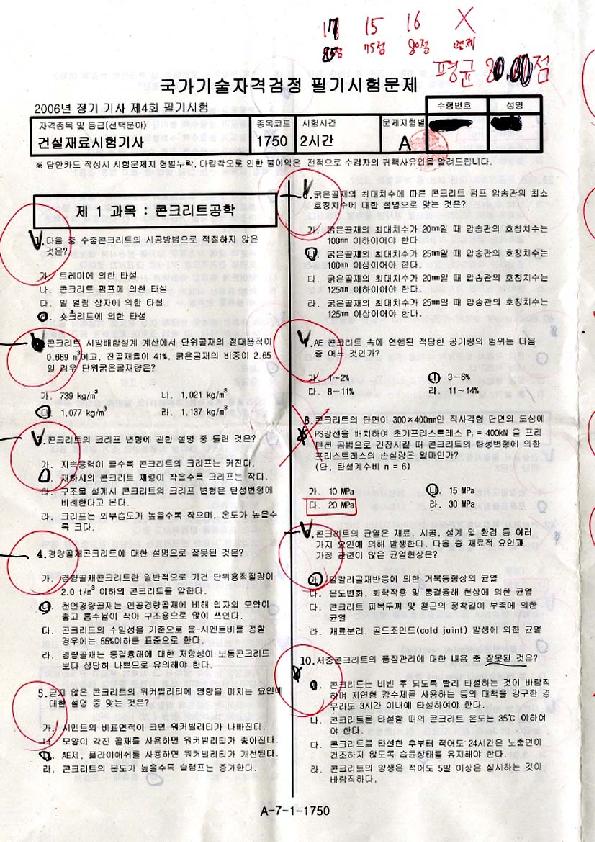 17 15 16 X
75점 80점
평균 점
국가기술자격검정 필기시험문제
2006년 정기 기사 제4회 필기시험
수험번호 성명
자격종목 및 등급(선택분야) 종목코드 시험시간 문제지형별
건설재료시험기사 1750 2시간 A
※ 답안카드 작성시 시험문제지 형별누락, 마킹착오로 인한 불이익은 전적으로 수험자의 귀책사유임을 알려드립니다.
제 1 과목 : 콘크리트공학
1. 다음 중 수중콘크리트의 시공방법으로 적절하지 않은
것은?
가. 트레미에 의한 타설
나. 콘크리트 펌프에 의한 타설
다. 밑 열림 상자에 의한 타설
숏크리트에 의한 타설
콘크리트 시방배합설계 계산에서 단위골재의 절대용적이
0.689 m³이고, 잔골재율이 41%, 굵은골재의 비중이 2.65
일 경우 단위굵은골재량은?
가. 739 kg/m³ 나. 1,021 kg/m³
1,077 kg/m³ 라. 1,137 kg/m³
콘크리트의 크리프 변형에 관한 설명 중 틀린 것은?
가. 지속응력이 클수록 콘크리트의 크리프는 커진다.
재하시의 콘크리트 재령이 작을수록 크리프는 작다.
다. 구조물 설계시 콘크리트의 크리프 변형은 탄성변형에
비례한다고 본다.
라. 크리프는 외부습도가 높을수록 작으며, 온도가 높을수
록 크다.
4. 경량골재콘크리트에 대한 설명으로 잘못된 것은?
가. 경량골재콘크리트란 일반적으로 기건 단위용적질량이
2.0 t/m³ 이하의 콘크리트를 말한다.
천연경량골재는 인공경량골재에 비해 입자의 모양이
좋고 흡수율이 작아 구조용으로 많이 쓰인다.
다. 콘크리트의 수밀성을 기준으로 물-시멘트비를 정할
경우에는 55%이하를 표준으로 한다.
라. 경량골재는 동결융해에 대한 저항성이 보통콘크리트
보다 상당히 나쁘므로 유의해야 한다.
5. 굳지 않은 콘크리트의 워커빌리티에 영향을 미치는 요인에
대한 설명 중 맞는 것은?
가. 시멘트의 비표면적이 크면 워커빌리티가 나빠진다.
나. 모양이 각진 골재를 사용하면 워커빌리티가 좋아진다.
AE제, 플라이애쉬를 사용하면 워커빌리티가 개선된다.
라. 콘크리트의 온도가 높을수록 슬럼프는 증가한다.
굵은골재의 최대치수에 따른 콘크리트 펌프 압송관의 최소
호칭치수에 대한 설명으로 맞는 것은?
가. 굵은골재의 최대치수가 20mm일 때 압송관의 호칭치수는
100mm 이하이어야 한다.
굵은골재의 최대치수가 25mm일 때 압송관의 호칭치수는
100mm 이상이어야 한다.
다. 굵은골재의 최대치수가 20mm일 때 압송관의 호칭치수는
125mm 이하이어야 한다.
라. 굵은골재의 최대치수가 25mm일 때 압송관의 호칭치수는
125mm 이상이어야 한다.
AE 콘크리트 속에 연행된 적당한 공기량의 범위는 다음
중 어느 것인가?
가. 1~2% 3~6%
다. 8~11% 라. 11~14%
8. 콘크리트의 단면이 300×400mm인 직사각형 단면의 도심에
PS강선을 배치하여 초기프리스트레스 Pᵢ = 400kN 을 프리
텐션 공법으로 긴장시킬 때 콘크리트의 탄성변형에 의한
프리스트레스의 손실량은 얼마인가?
(단, 탄성계수비 n = 6)
가. 10 MPa 15 MPa
다. 20 MPa 라. 30 MPa
콘크리트의 균열은 재료, 시공, 설계 및 환경 등 여러
가지 요인에 의해 발생한다. 다음 중 재료적 요인과
가장 관련이 많은 균열현상은?
알칼리골재반응에 의한 거북등형상의 균열
나. 온도변화, 화학작용 및 동결융해 현상에 의한 균열
다. 콘크리트 피복두께 및 철근의 정착길이 부족에 의한
균열
라. 재료분리, 콜드조인트(cold joint) 발생에 의한 균열
10. 서중콘크리트의 품질관리에 대한 내용 중 잘못된 것은?
콘크리트는 비빈 후 되도록 빨리 타설하는 것이 바람직
하며 지연형 감수제를 사용하는 등의 대책을 강구한 경
우라도 3시간 이내에 타설하여야 한다.
나. 콘크리트를 타설할 때의 콘크리트 온도는 35℃ 이하여
야 한다.
다. 콘크리트를 타설한 후부터 적어도 24시간은 노출면이
건조하지 않도록 습윤상태를 유지해야 한다.
라. 콘크리트의 양생은 적어도 5일 이상은 실시하는 것이
바람직하다.
A-7-1-1750